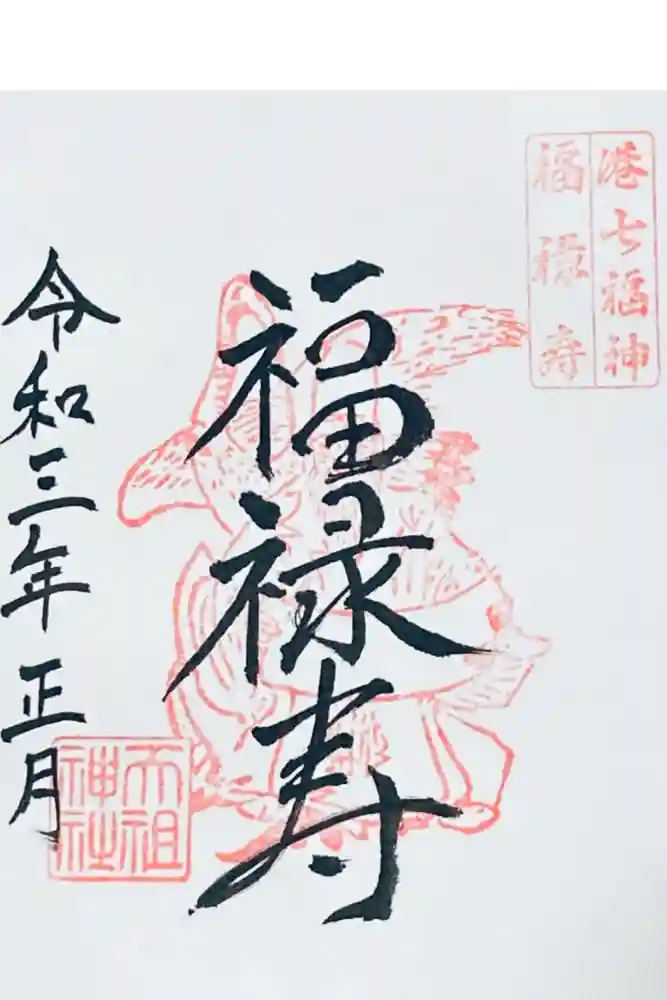 港七福神
福禄寿
福禄寿
令和三年正月
天祖
神社